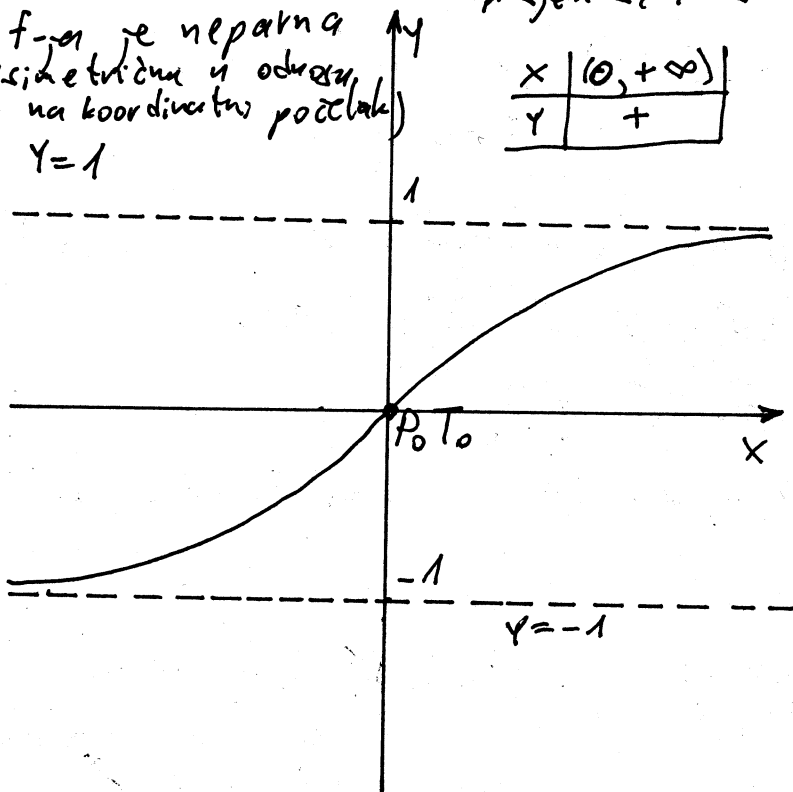 f-ja je neparna
simetrična u odnosu
na koordinatni početak)
Y=1
X (0, +∞)
Y +
Y
1
P₀ T₀
X
-1
Y=-1